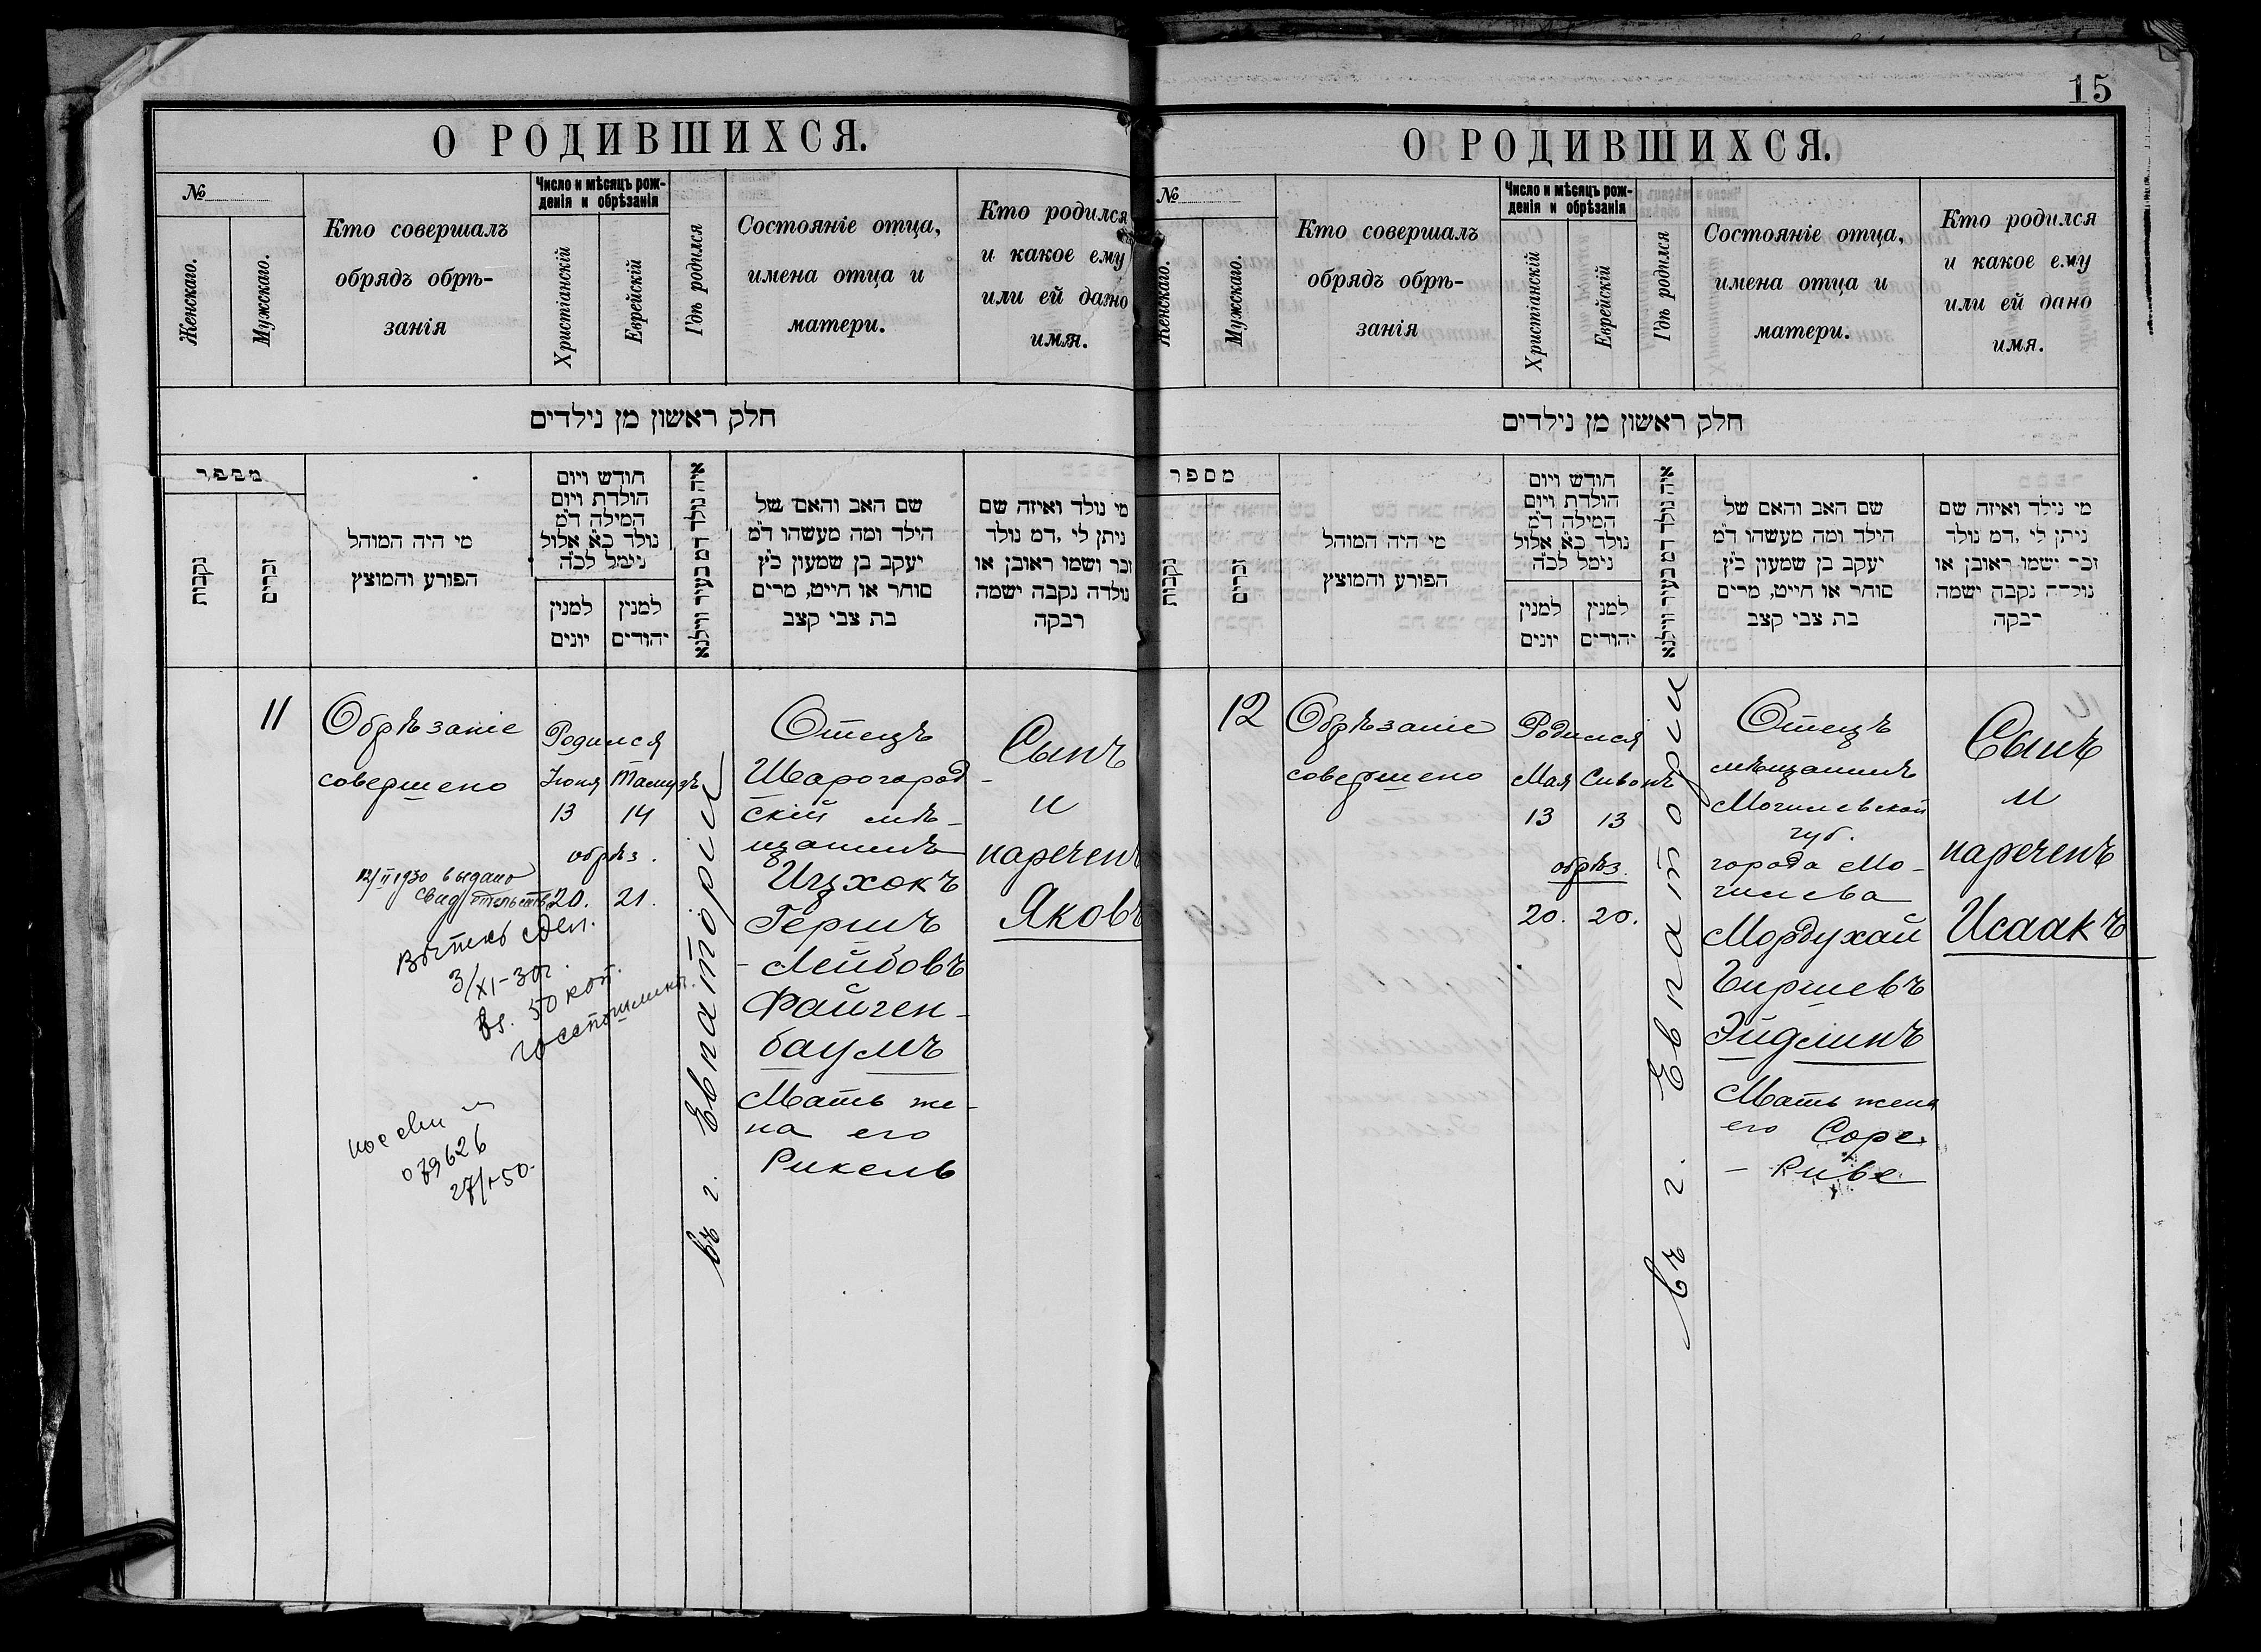 О РОДИВШИХСЯ.
№
Женскаго.
Мужскаго.
Кто совершалъ
обрядъ обрѣ-
занія
Число и мѣсяцъ рож-
денія и обрѣзанія
Христіанскій
Еврейскій
Гдѣ родился
Состояніе отца,
имена отца и
матери.
Кто родился
и какое ему
или ей дано
имя.
חלק ראשון מן נילדים
מספר
נקבות
זכרים
מי היה המוהל
הפורע והמוצץ
חודש ויום
הולדת ויום
המילה ד״מ
נולד כ״א אלול
נימל לכ״ה
למנין
יונים
למנין
יהודים
איה נולד דמ בעיר ווילנא
שם האב והאם של
הילד ומה מעשהו ד״מ
יעקב בן שמעון כ״ץ
סוחר או חייט, מרים
בת צבי קצב
מי נולד ואיזה שם
ניתן לי ,דמ נולד
זכר ושמו ראובן או
נולדה נקבה ישמה
רבקה
11
Обрѣзаніе
совершено
12/II 1930 выдано
свидѣтельство
3/XI-30г.
50 коп.
госпошлины.
079626
Родился
Іюня Тамузъ
13 14
обрѣз.
20. 21.
въ г. Евпаторіи
Отецъ
Шарогород
скій мѣ-
щанинъ
Ицхокъ
Гершъ
-Лейбовъ
Файген-
баумъ
Мать же-
на его
Рикель
Сынъ
и
нареченъ
Яковъ
15
О РОДИВШИХСЯ.
№
Женскаго.
Мужскаго.
Кто совершалъ
обрядъ обрѣ-
занія
Число и мѣсяцъ рож-
денія и обрѣзанія
Христіанскій
Еврейскій
Гдѣ родился
Состояніе отца,
имена отца и
матери.
Кто родился
и какое ему
или ей дано
имя.
חלק ראשון מן נילדים
מספר
נקבות
זכרים
מי היה המוהל
הפורע והמוצץ
חודש ויום
הולדת ויום
המילה ד״מ
נולד כ״א אלול
נימל לכ״ה
למנין
יונים
למנין
יהודים
איה נולד דמ בעיר ווילנא
שם האב והאם של
הילד ומה מעשהו ד״מ
יעקב בן שמעון כ״ץ
סוחר או חייט, מרים
בת צבי קצב
מי נילד ואיזה שם
ניתן לי ,דמ נולד
זכר ישמו ראובן או
נולדה נקבה ישמה
רבקה
12
Обрѣзаніе
совершено
Родился
Мая Сивонъ
13 13
обрѣз.
20. 20.
въ г. Евпаторіи
Отецъ
мѣщанинъ
Могилевской
губ.
города Мо-
гилева
Мордухай
Гиршевъ
Эйдлинъ
Мать жена
его Соре
- Риве
Сынъ
и
нареченъ
Исаакъ